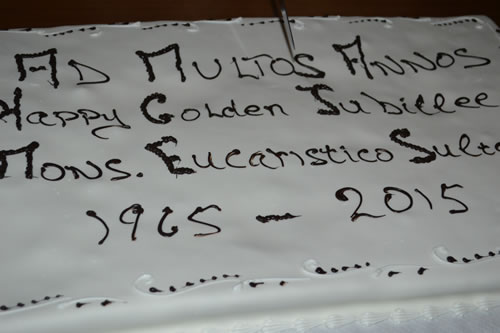 Ad Multos Annos
Happy Golden Jubillee
Mons. Eucaristico Sulto
1965 - 2015